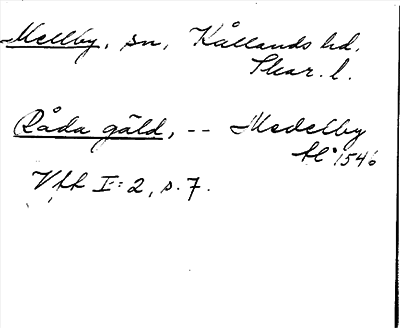 Mellby, sn, Kållands hd.
Skar. l.
Råda gäld, -- Medelby
1546
Vff I:2, s. 7.